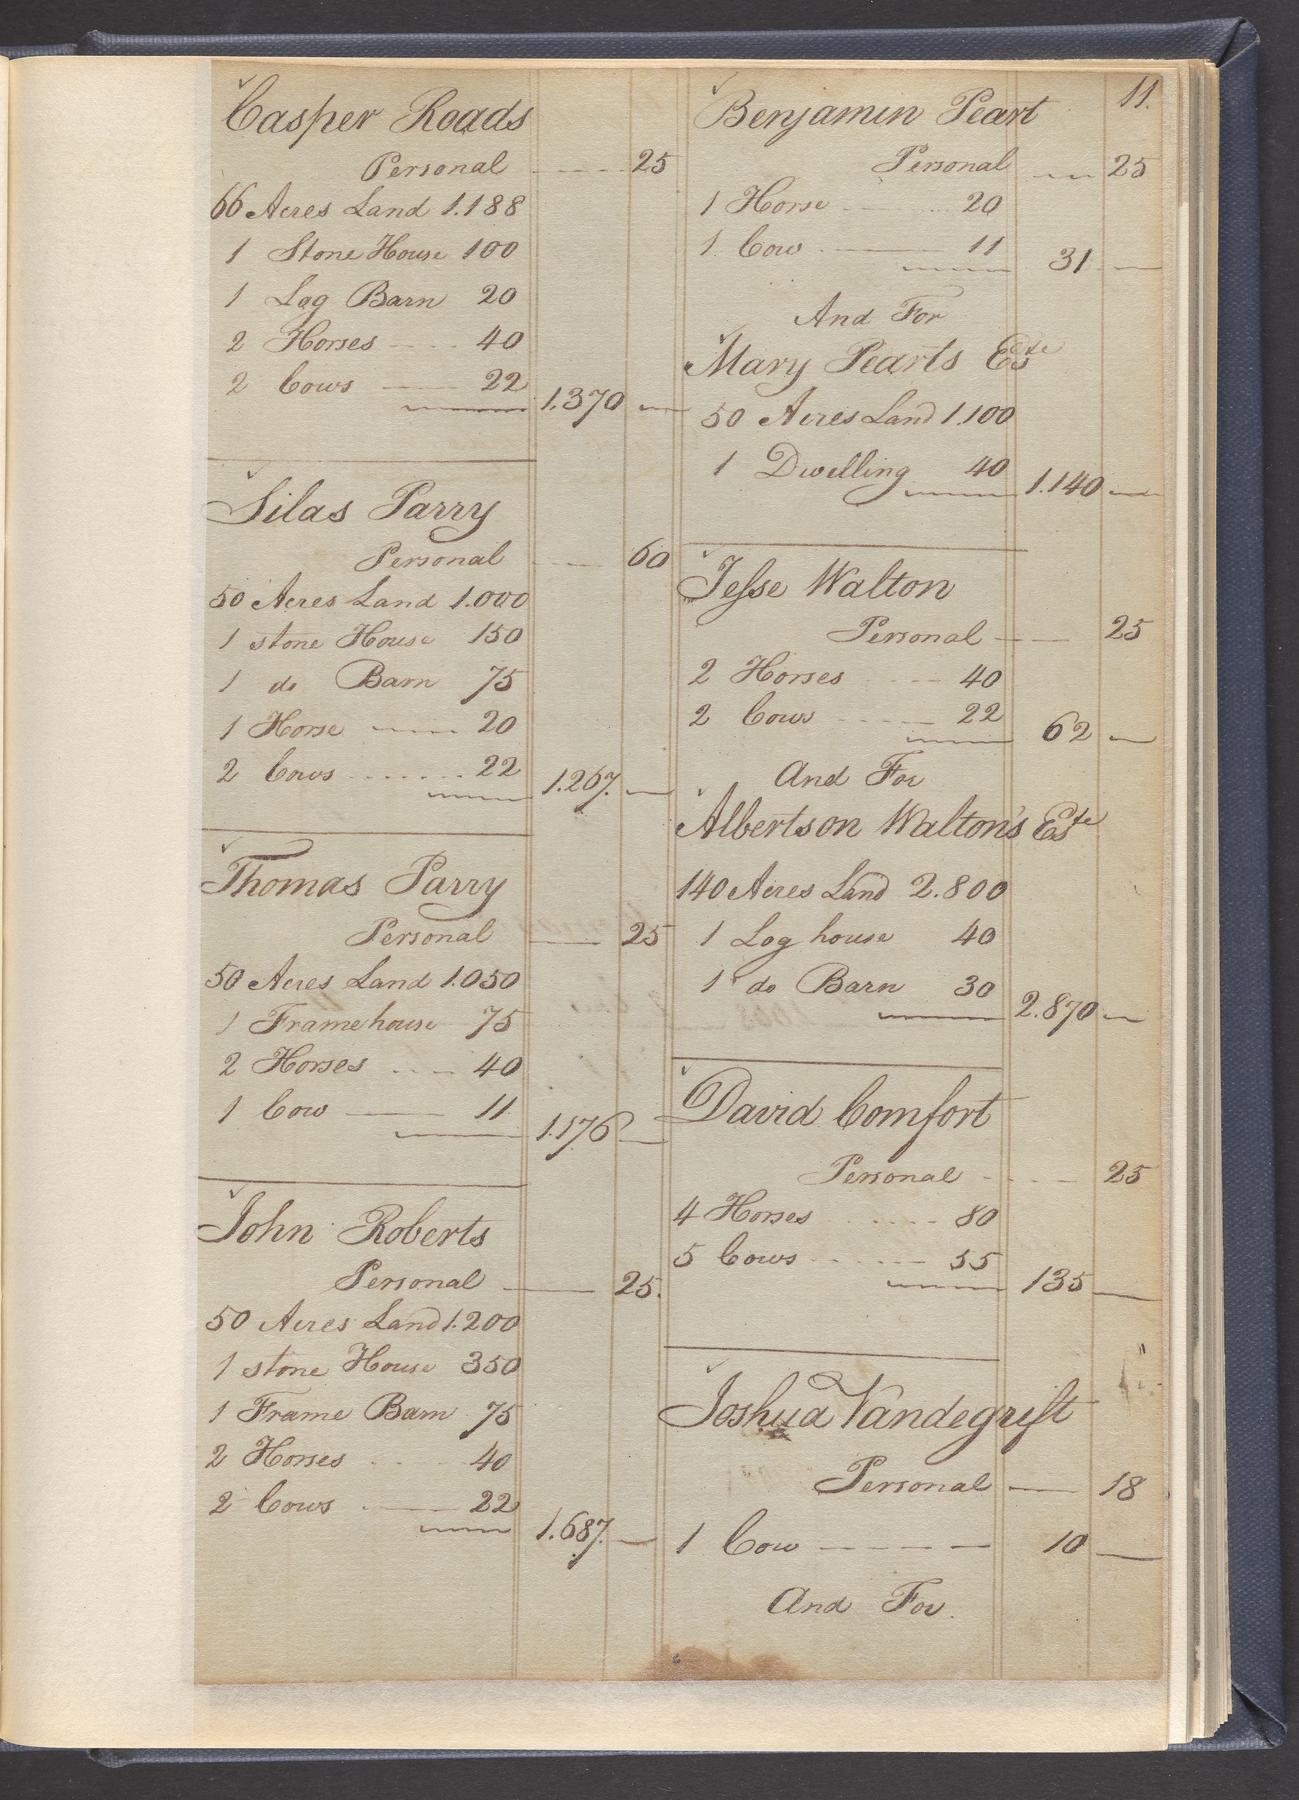 Casper Roads
Personal 25
66 Acres Land 1.188
1 Stone House 100
1 Log Barn 20
2 Horses 40
2 Cows 22
1.370
Silas Parry
Personal 60
50 Acres Land 1.000
1 stone House 150
1 do Barn 75
1 Horse 20
2 Cows 22
1.267.
Thomas Parry
Personal 25
50 Acres Land 1.050
1 Frame house 75
2 Horses 40
1 Cow 11
1.176
John Roberts
Personal 25.
50 Acres Land 1.200
1 stone House 350
1 Frame Barn 75
2 Horses 40
2 Cows 22
1.687.
11.
Benjamin Peart
Personal 25
1 Horse 20
1 Cow 11
31
And For
Mary Pearts Este
50 Acres Land 1.100
1 Dwelling 40
1.140
Jeſse Walton
Personal 25
2 Horses 40
2 Cows 22
62
And For
Albertson Walton's Este
140 Acres Land 2.800
1 Log house 40
1 do Barn 30
2.870
David Comfort
Personal 25
4 Horses 80
5 Cows 55
135
Joshua Vandegrift
Personal 18
1 Cow 10
And For.